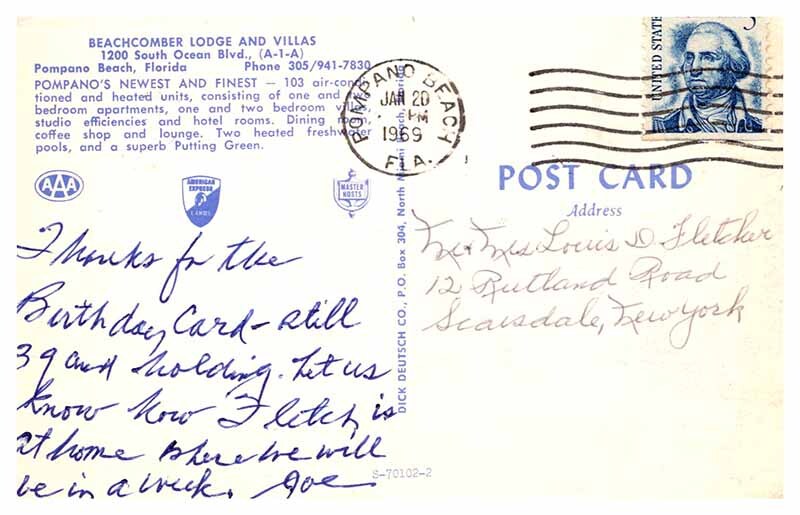 BEACHCOMBER LODGE AND VILLAS
1200 South Ocean Blvd., (A-1-A)
Pompano Beach, Florida Phone 305/941-7830
POMPANO'S NEWEST AND FINEST — 103 air-condi-
tioned and heated units, consisting of one and two
bedroom apartments, one and two bedroom villas,
studio efficiencies and hotel rooms. Dining room,
coffee shop and lounge. Two heated freshwater
pools, and a superb Putting Green.
AAA
AMERICAN EXPRESS
CARDS
MASTER HOSTS
Thanks for the
Birthday Card - still
39 and holding. Let us
know how Fletch is
at home where we will
be in a week. Joe
DICK DEUTSCH CO., P.O. Box 304, North Miami Beach, Florida
S-70102-2
POMPANO BEACH
JAN 20
PM
1969
FLA.
UNITED STATE
5
POST CARD
Address
Mr + Mrs Louis D. Fletcher
12 Rutland Road
Scarsdale, New York